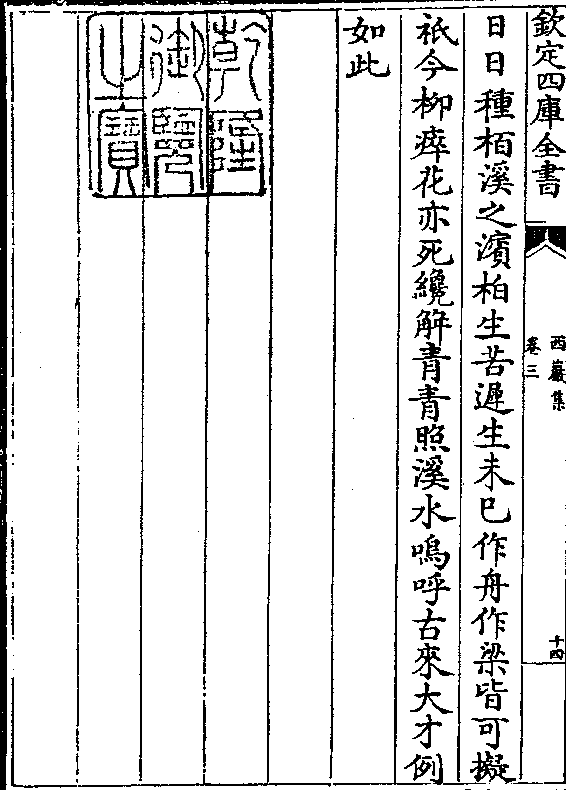 欽定四庫全書
西巖集
卷三
十四
日日種栢溪之濱柏生苦遲生未已作舟作梁皆可擬
祇今柳瘁花亦死纔解青青照溪水嗚呼古來大才例
如此
乾隆
御覽
之寶